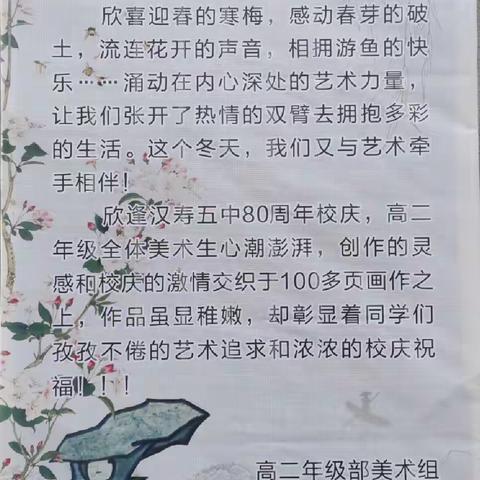 欣喜迎春的寒梅，感动春芽的破
土，流连花开的声音，相拥游鱼的快
乐……涌动在内心深处的艺术力量，
让我们张开了热情的双臂去拥抱多彩
的生活。这个冬天，我们又与艺术牵
手相伴！
欣逢汉寿五中80周年校庆，高二
年级全体美术生心潮澎湃，创作的灵
感和校庆的激情交织于100多页画作之
上，作品虽显稚嫩，却彰显着同学们
孜孜不倦的艺术追求和浓浓的校庆祝
福！！！
高二年级部美术组